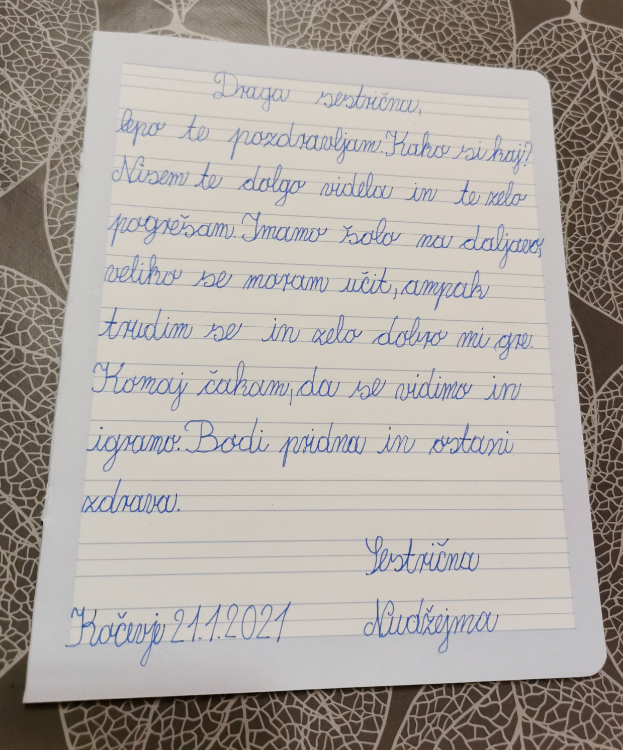 Draga sestrična,
lepo te pozdravljam. Kako si kaj?
Nisem te dolgo videla in te zelo
pogrešam. Imamo šolo na daljavo,
veliko se moram učit, ampak
trudim se in zelo dobro mi gre.
Komaj čakam, da se vidimo in
igramo. Bodi pridna in ostani
zdrava.
Sestrična
Kočevje 21.1.2021 Nudžejma